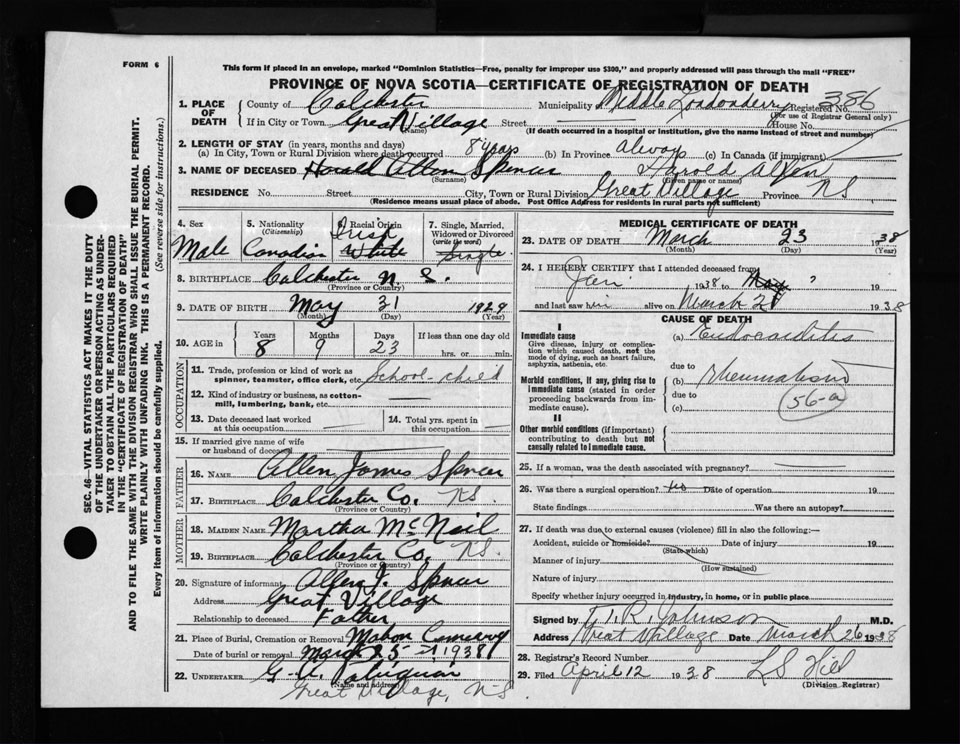 FORM 6
This form if placed in an envelope, marked "Dominion Statistics—Free, penalty for improper use $300," and properly addressed will pass through the mail "FREE"
PROVINCE OF NOVA SCOTIA—CERTIFICATE OF REGISTRATION OF DEATH
SEC. 46—VITAL STATISTICS ACT MAKES IT THE DUTY
OF THE UNDERTAKER OR PERSON ACTING AS UNDER-
TAKER TO OBTAIN ALL THE PARTICULARS REQUIRED
IN THE "CERTIFICATE OF REGISTRATION OF DEATH"
AND TO FILE THE SAME WITH THE DIVISION REGISTRAR WHO SHALL ISSUE THE BURIAL PERMIT.
WRITE PLAINLY WITH UNFADING INK. THIS IS A PERMANENT RECORD.
Every item of information should be carefully supplied. (See reverse side for instructions.)
1. PLACE OF DEATH
County of Colchester Municipality Middle Londonderry Registered No. 386
(For use of Registrar General only)
If in City or Town Great Village Street House No.
(Name) (If death occurred in a hospital or institution, give the name instead of street and number)
2. LENGTH OF STAY (in years, months and days)
(a) In City, Town or Rural Division where death occurred 8 years (b) In Province Always (c) In Canada (if immigrant)
3. NAME OF DECEASED Harold Allen Spencer Harold Allen
(Surname) (Given name or names)
RESIDENCE No. Street City, Town or Rural Division Great Village Province N S
(Residence means usual place of abode. Post Office Address for residents in rural parts not sufficient)
4. Sex Male
5. Nationality (Citizenship) Canadian
6. Racial Origin Irish White
7. Single, Married, Widowed or Divorced (write the word) Single
8. BIRTHPLACE Colchester N. S.
(Province or Country)
9. DATE OF BIRTH May 31 1929
(Month) (Day) (Year)
10. AGE in Years Months Days If less than one day old
8 9 23 hrs. or min.
OCCUPATION
11. Trade, profession or kind of work as
spinner, teamster, office clerk, etc. School child
12. Kind of industry or business, as cotton-
mill, lumbering, bank, etc.
13. Date deceased last worked at this occupation
14. Total yrs. spent in this occupation
15. If married give name of wife
or husband of deceased
FATHER
16. NAME Allen James Spencer
17. BIRTHPLACE Colchester Co. N.S.
(Province or Country)
MOTHER
18. MAIDEN NAME Martha McNeil
19. BIRTHPLACE Colchester Co. N.S.
(Province or Country)
20. Signature of informant Allen J. Spencer
Address Great Village
Relationship to deceased Father
21. Place of Burial, Cremation or Removal Mahon Cemetery
Date of burial or removal March 25 1938
22. UNDERTAKER
(Name and address)
Great Village, N-S
MEDICAL CERTIFICATE OF DEATH
23. DATE OF DEATH March 23 1938
(Month) (Day) (Year)
24. I HEREBY CERTIFY that I attended deceased from
Jan 1938 to "
and last saw him alive on March 21 1938
CAUSE OF DEATH
I
Immediate cause
Give disease, injury or complica-
tion which caused death, not the
mode of dying, such as heart failure,
asphyxia, asthenia, etc.
(a) Endocarditis
due to
Morbid conditions, if any, giving rise to
immediate cause (stated in order
proceeding backwards from im-
mediate cause).
(b) Rheumatism
due to
(c) 56-a
II
Other morbid conditions (if important)
contributing to death but not
causally related to immediate cause.
25. If a woman, was the death associated with pregnancy?
26. Was there a surgical operation? No Date of operation 19
State findings Was there an autopsy?
27. If death was due to external causes (violence) fill in also the following:—
Accident, suicide or homicide? Date of injury 19
(State which)
Manner of injury
(How sustained)
Nature of injury
Specify whether injury occurred in industry, in home, or in public place
Signed by T. R. Johnson M.D.
Address Great Village Date March 26 1938
28. Registrar's Record Number
29. Filed April 12 1938 L S Hill
(Division Registrar)